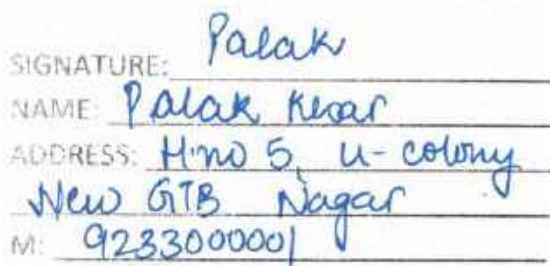 SIGNATURE: Palak
NAME: Palak Kesar
ADDRESS: H.no 5, U-colony
New GTB Nagar
M: 9233000001